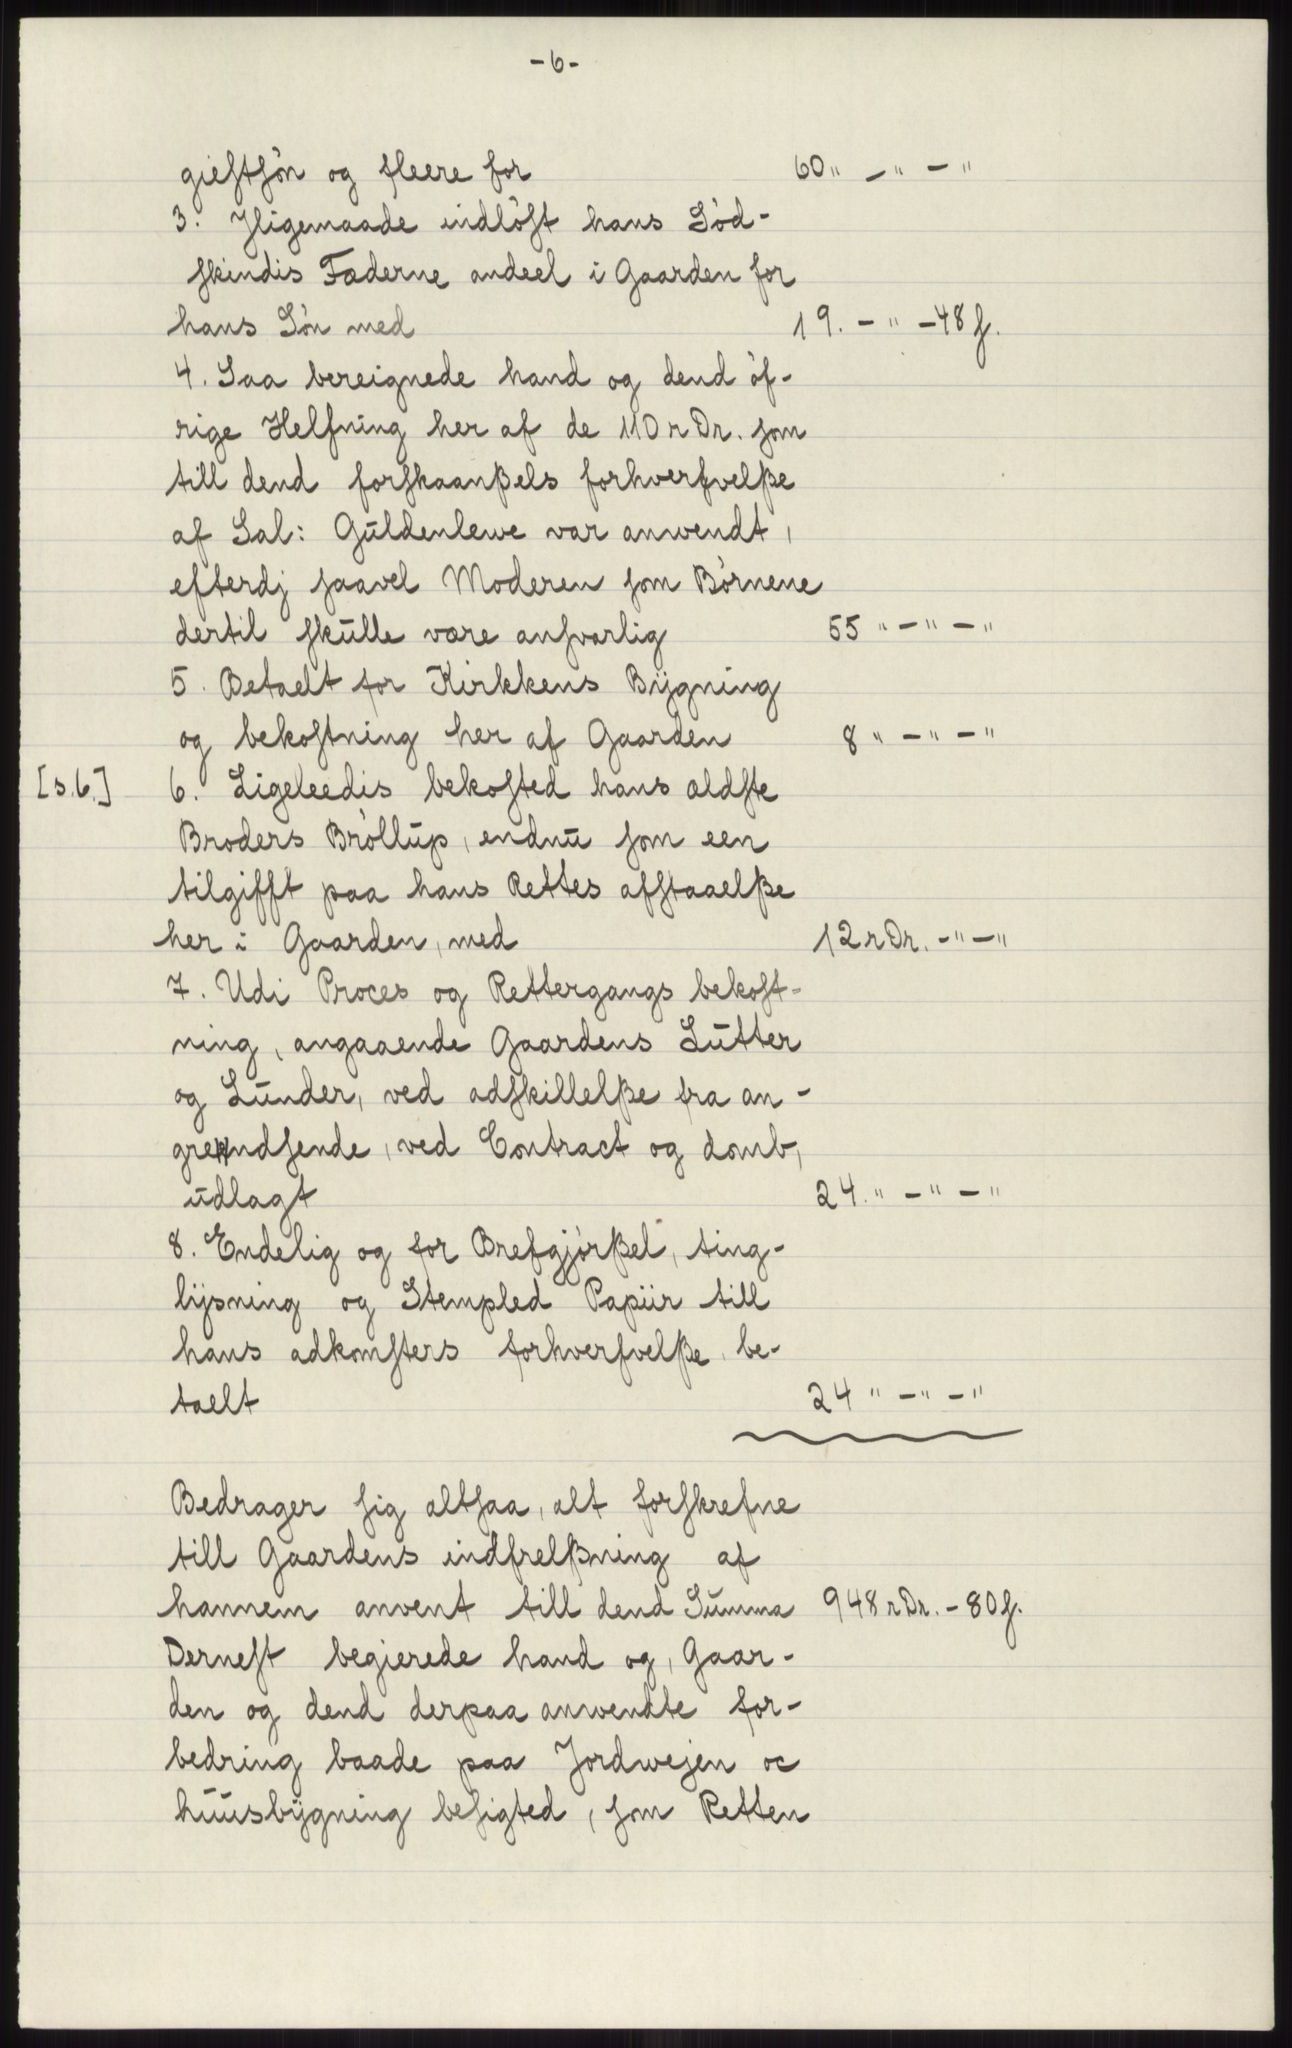 -6-
gieftsön og fleere for 60 " - " - "
3. Jligemaade indlöst hans Söd-
skindis Fæderne andeel i Gaarden for
hans Sön med 19. - " - 48 s.
4. Saa bereignede hand og dend öf-
rige Helfning her af de 110 rDr. som
till dend forskaanßels forhverfvelße
af Sal: Gūldenlewe var anwendt,
efterdj saavel Moderen som Börnene
dertil skūlle være ansvarlig 55 " - " - "
5. Betaelt for Kirkkens Bÿgning
og bekostning her af Gaarden 8 " - " - "
[s.6.] 6. Ligeleedis bekosted hans ældste
Broders Bröllūp, endnū som een
tilgifft paa hans Rettes afstaaelße
her i Gaarden, med 12 rDr. - " - "
7. Udi Proces og Rettergangs bekost-
ning, angaaende Gaardens Lūtter
og Lūnder, ved adskillelße fra an-
grendsende, ved Contract og domb,
ūdlagt 24. " - " - "
8. Endelig og for Brefgjörßel, ting-
lÿsning og Stempled Papiir till
hans adkomsters forhverfvelße, be-
taelt 24 " - " - "
Bedrager sig altsaa, alt forskrefne
till Gaardens indfrelßning af
hannem anvent till dend Sūmma 948 rDr. - 80 s.
Dernest begierede hand og, Gaar-
den og dend derpaa anwendte for-
bedring baade paa Jordwejen oc
hūūsbÿgning besigted, som Retten